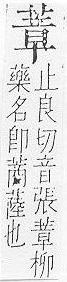 蔁
止良切音張蔁柳
藥名即蔏薩也